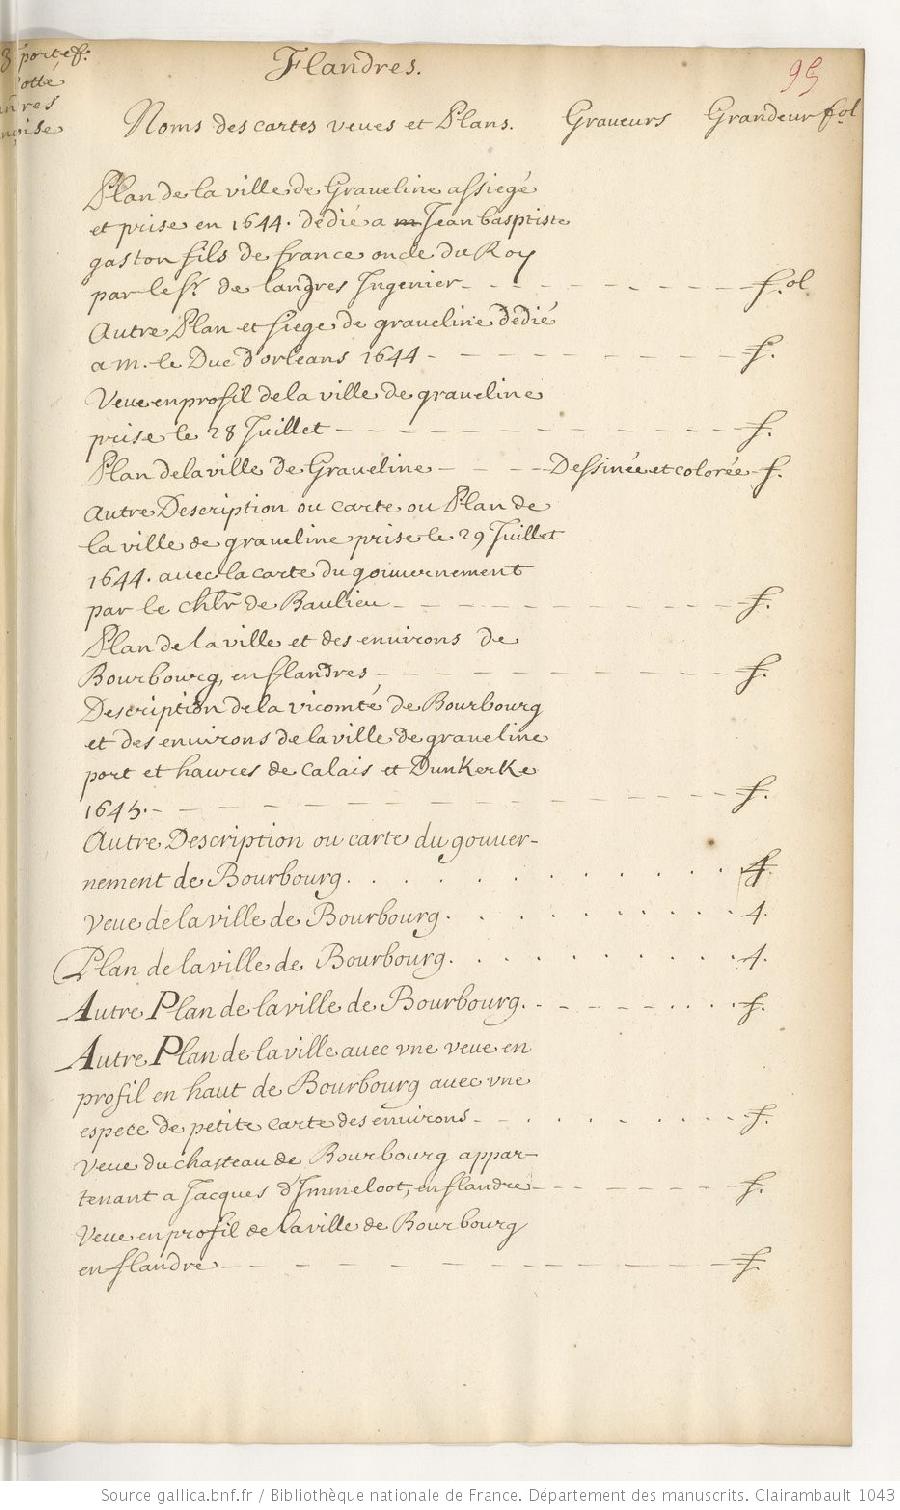 3 portef.
Flandres.
95
Noms des cartes veues et Plans. Graveurs Grandeur fol
Plan de la ville de Graveline assiegé
et prise en 1644. dedié a m Jean basptiste
gaston fils de france oncle du Roy
par le Sr. de langres Ingenier - - - - - - - f.ol
Autre Plan et siege de graveline dedié
a m. le Duc d'orleans 1644 - - - - - - - f.
Veue en profil de la ville de graveline
prise le 28 Juillet - - - - - - - f.
Plan de la ville de Graveline - - - Dessinée et colorée - f.
Autre Description ou carte ou Plan de
la ville de graveline prise le 29 Juillet
1644. avec la carte du gouvernement
par le chlr de Baulieu - - - - - - - f.
Plan de la ville et des environs de
Bourbourg, en flandres - - - - - - - f.
Description de la vicomté de Bourbourg
et des environs de la ville de graveline
port et havres de Calais et Dunkerke
1645. - - - - - - - f.
Autre Description ou carte du gouver-
nement de Bourbourg. . . . . . . .
veue de la ville de Bourbourg. . . . . . . . 4.
Plan de la ville de Bourbourg. . . . . . . . 4.
Autre Plan de la ville de Bourbourg. - - - - . . . f.
Autre Plan de la ville avec vne veue en
profil en haut de Bourbourg avec vne
espece de petite carte des environs - - . . . . . f.
veue du chasteau de Bourbourg appar-
tenant a Jacques d'Immeloot, en flandre - - - - - f.
Veue en profil de la ville de Bourbourg
en flandre - - - - - - - f.
Source gallica.bnf.fr / Bibliothèque nationale de France. Département des manuscrits. Clairambault 1043